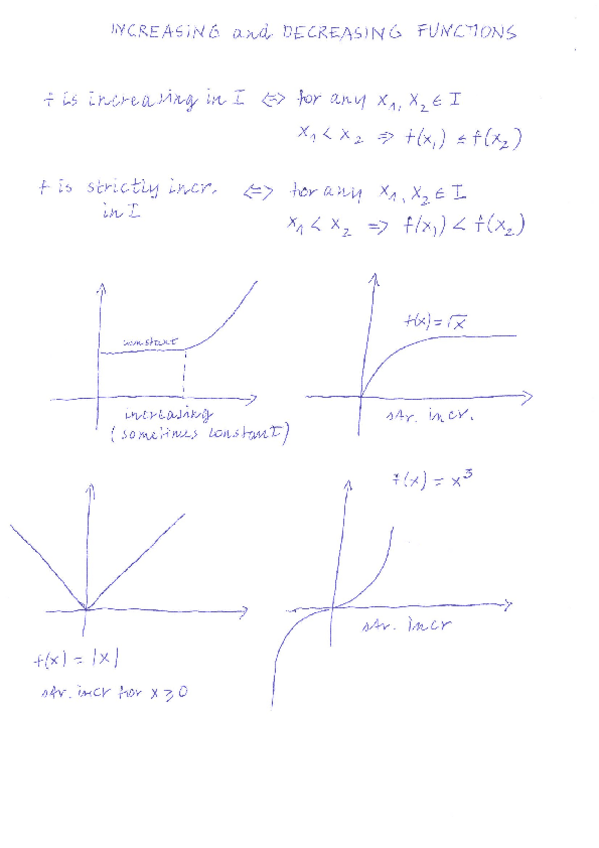 INCREASING and DECREASING FUNCTIONS
f is increasing in I ⇔ for any x₁, x₂ ∈ I
x₁ < x₂ ⇒ f(x₁) ≤ f(x₂)
f is strictly incr. ⇔ for any x₁, x₂ ∈ I
in I
x₁ < x₂ ⇒ f(x₁) < f(x₂)
constant
increasing
(sometimes constant)
f(x) = √x
str. incr.
f(x) = |x|
str. incr for x ≥ 0
f(x) = x³
str. incr